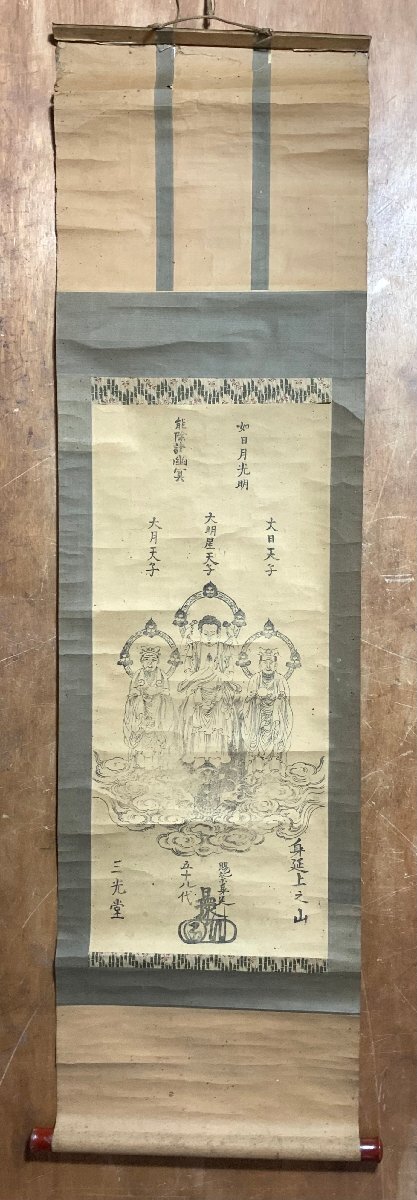 如日月光明
能除諸幽冥
大日天子
大明星天子
大月天子
身延上之山
五十八代
三光堂